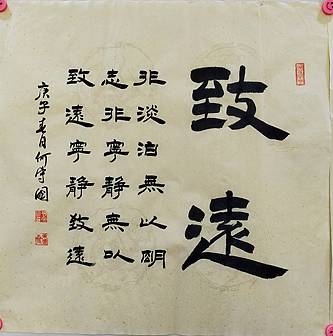 致遠
非淡泊無以明
志非寧靜無以
致遠寧靜致遠
庚子春月何國